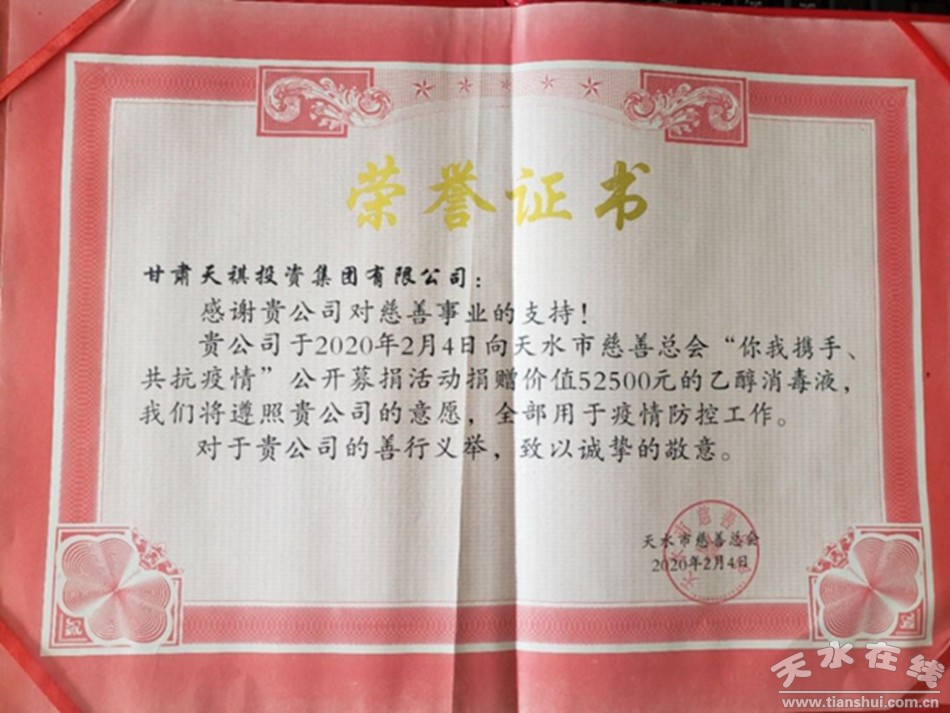 荣誉证书
甘肃天祺投资集团有限公司：
感谢贵公司对慈善事业的支持！
贵公司于2020年2月4日向天水市慈善总会“你我携手、
共抗疫情”公开募捐活动捐赠价值52500元的乙醇消毒液，
我们将遵照贵公司的意愿，全部用于疫情防控工作。
对于贵公司的善行义举，致以诚挚的敬意。
天水市慈善总会
2020年2月4日
天水在线
www.tianshui.com.cn